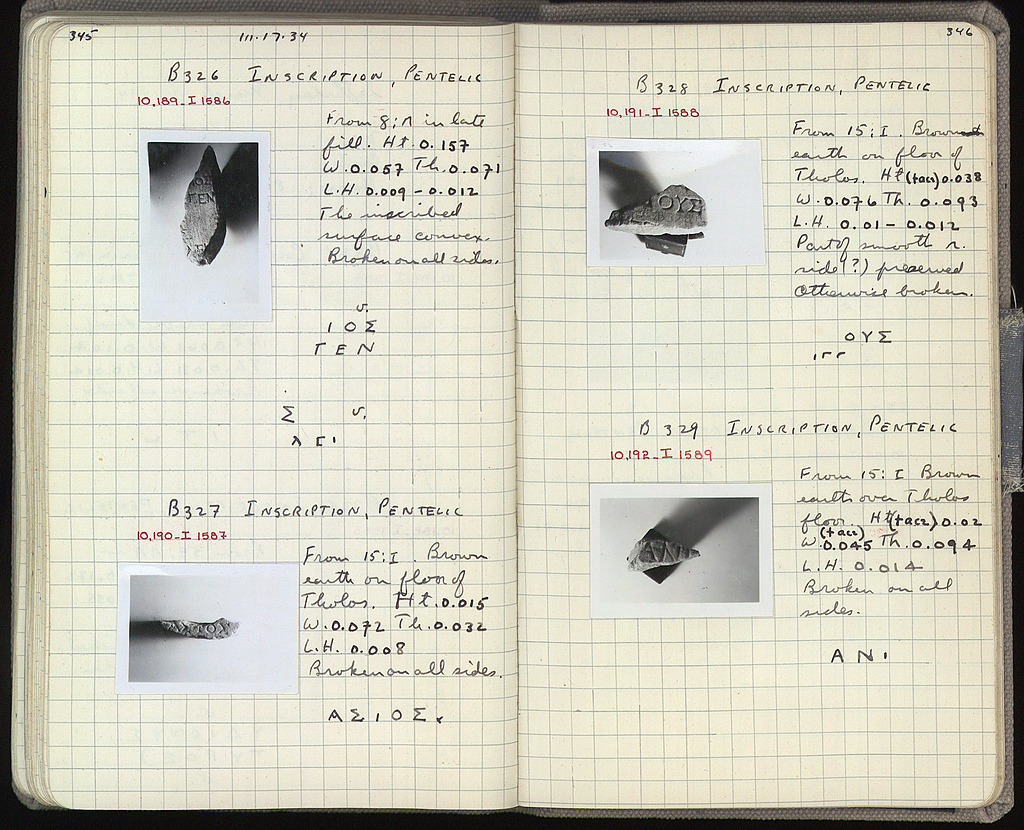 345
111·17·34
B326 INSCRIPTION, PENTELIC
10,189-I 1586
From 8:Λ in late
fill. Ht. 0.157
W. 0.057 Th. 0.071
L.H. 0.009 - 0.012
The inscribed
surface convex.
Broken on all sides.
v.
Ι Ο Σ
Τ Ε Ν
Σ v.
B327 INSCRIPTION, PENTELIC
10,190-I 1587
From 15:I. Brown
earth on floor of
Tholos. Ht. 0.015
W. 0.072 Th. 0.032
L.H. 0.008
Broken on all sides.
Α Σ Ι Ο Σ
346
B328 INSCRIPTION, PENTELIC
10,191-I 1588
From 15:I. Brown
earth on floor of
Tholos. Ht (tacc) 0.038
W. 0.076 Th. 0.093
L.H. 0.01 - 0.012
Part of smooth r.
side(?) preserved
Otherwise broken.
Ο Υ Σ
B329 INSCRIPTION, PENTELIC
10,192-I 1589
From 15:I Brown
earth over Tholos
floor. Ht (tacc) 0.02
(tacc)
W. 0.045 Th. 0.094
L.H. 0.014
Broken on all
sides.
Α Ν Ι